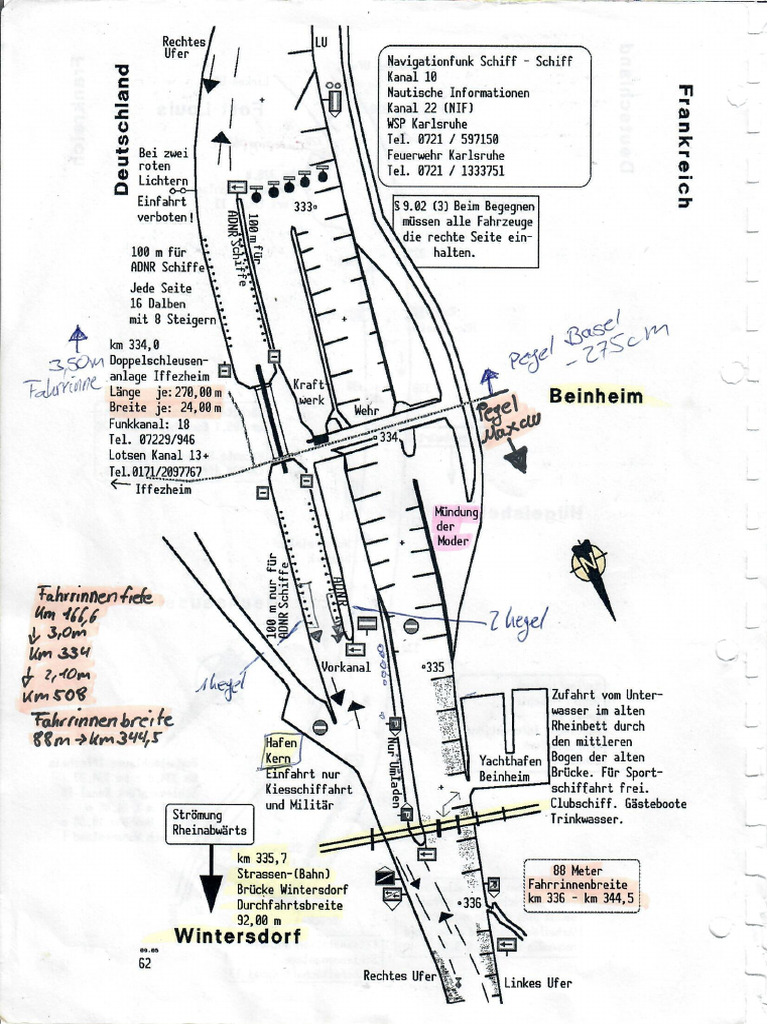 Rechtes
Ufer
LU
Deutschland
Frankreich
Navigationfunk Schiff - Schiff
Kanal 10
Nautische Informationen
Kanal 22 (NIF)
WSP Karlsruhe
Tel. 0721 / 597150
Feuerwehr Karlsruhe
Tel. 0721 / 1333751
Bei zwei
roten
Lichtern
Einfahrt
verboten!
333
§ 9.02 (3) Beim Begegnen
müssen alle Fahrzeuge
die rechte Seite ein-
halten.
100 m für
ADNR Schiffe
100 m für
ADNR Schiffe
Jede Seite
16 Dalben
mit 8 Steigern
3,50m
Fahrrinne
km 334,0
Doppelschleusen-
anlage Iffezheim
Länge je: 270,00 m
Breite je: 24,00 m
Funkkanal: 18
Tel. 07229/946
Lotsen Kanal 13+
Tel.0171/2097767
Iffezheim
Kraft-
werk
Wehr
334
Pegel Basel
- 275cm
Beinheim
Pegel
Maxau
Mündung
der
Moder
100 m nur für
ADNR Schiffe
ADNR
2 kegel
1 kegel
Vorkanal
335
Fahrrinnentiefe
Km 166,6
3,0m
Km 334
2,10m
Km 508
Fahrrinnenbreite
88m → km 344,5
Hafen
Kern
Einfahrt nur
Kiesschiffahrt
und Militär
Nur Umladen
Yachthafen
Beinheim
Zufahrt vom Unter-
wasser im alten
Rheinbett durch
den mittleren
Bogen der alten
Brücke. Für Sport-
schiffahrt frei.
Clubschiff. Gästeboote
Trinkwasser.
Strömung
Rheinabwärts
km 335,7
Strassen-(Bahn)
Brücke Wintersdorf
Durchfahrtsbreite
92,00 m
Wintersdorf
88 Meter
Fahrrinnenbreite
km 336 - km 344,5
336
Rechtes Ufer
Linkes Ufer
62